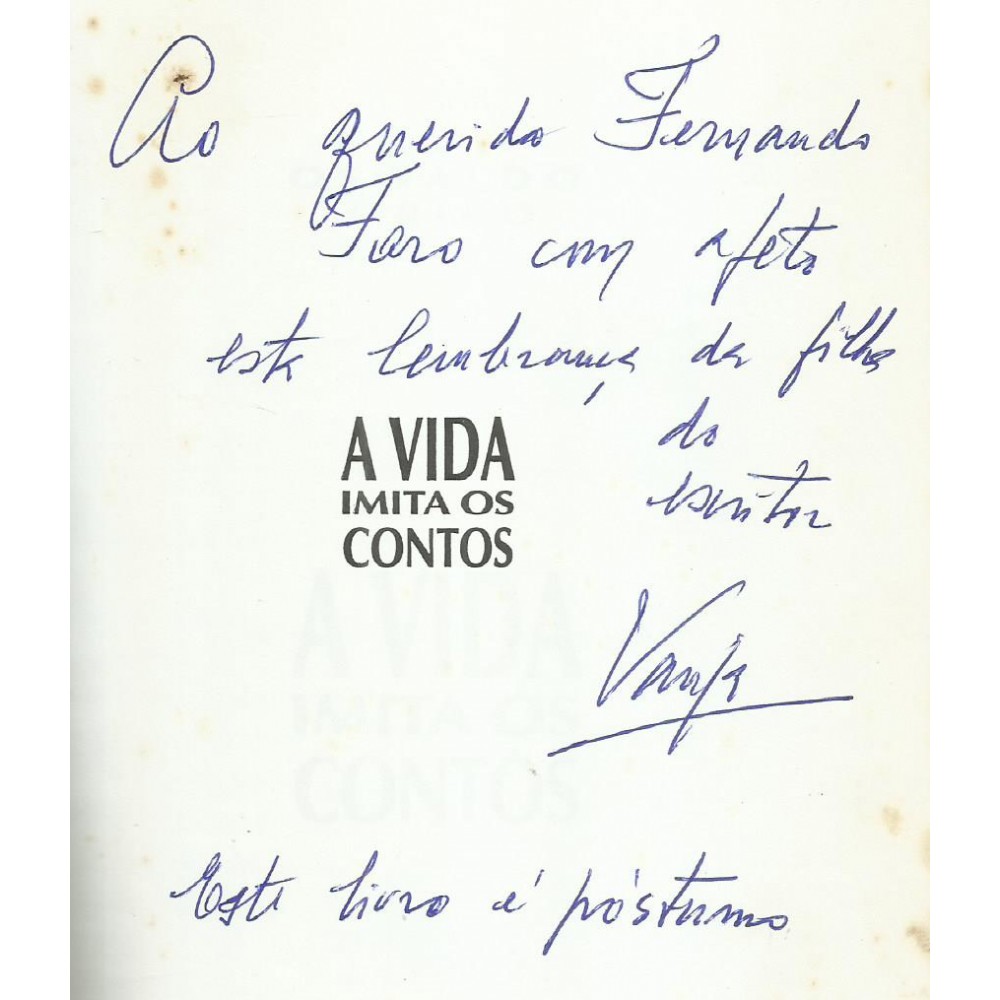 Ao querido Fernando
Faro com afeto
esta lembrança da filha
do
escritor
A VIDA
IMITA OS
CONTOS
Vanja
A VIDA
IMITA OS
CONTOS
Este livro é póstumo